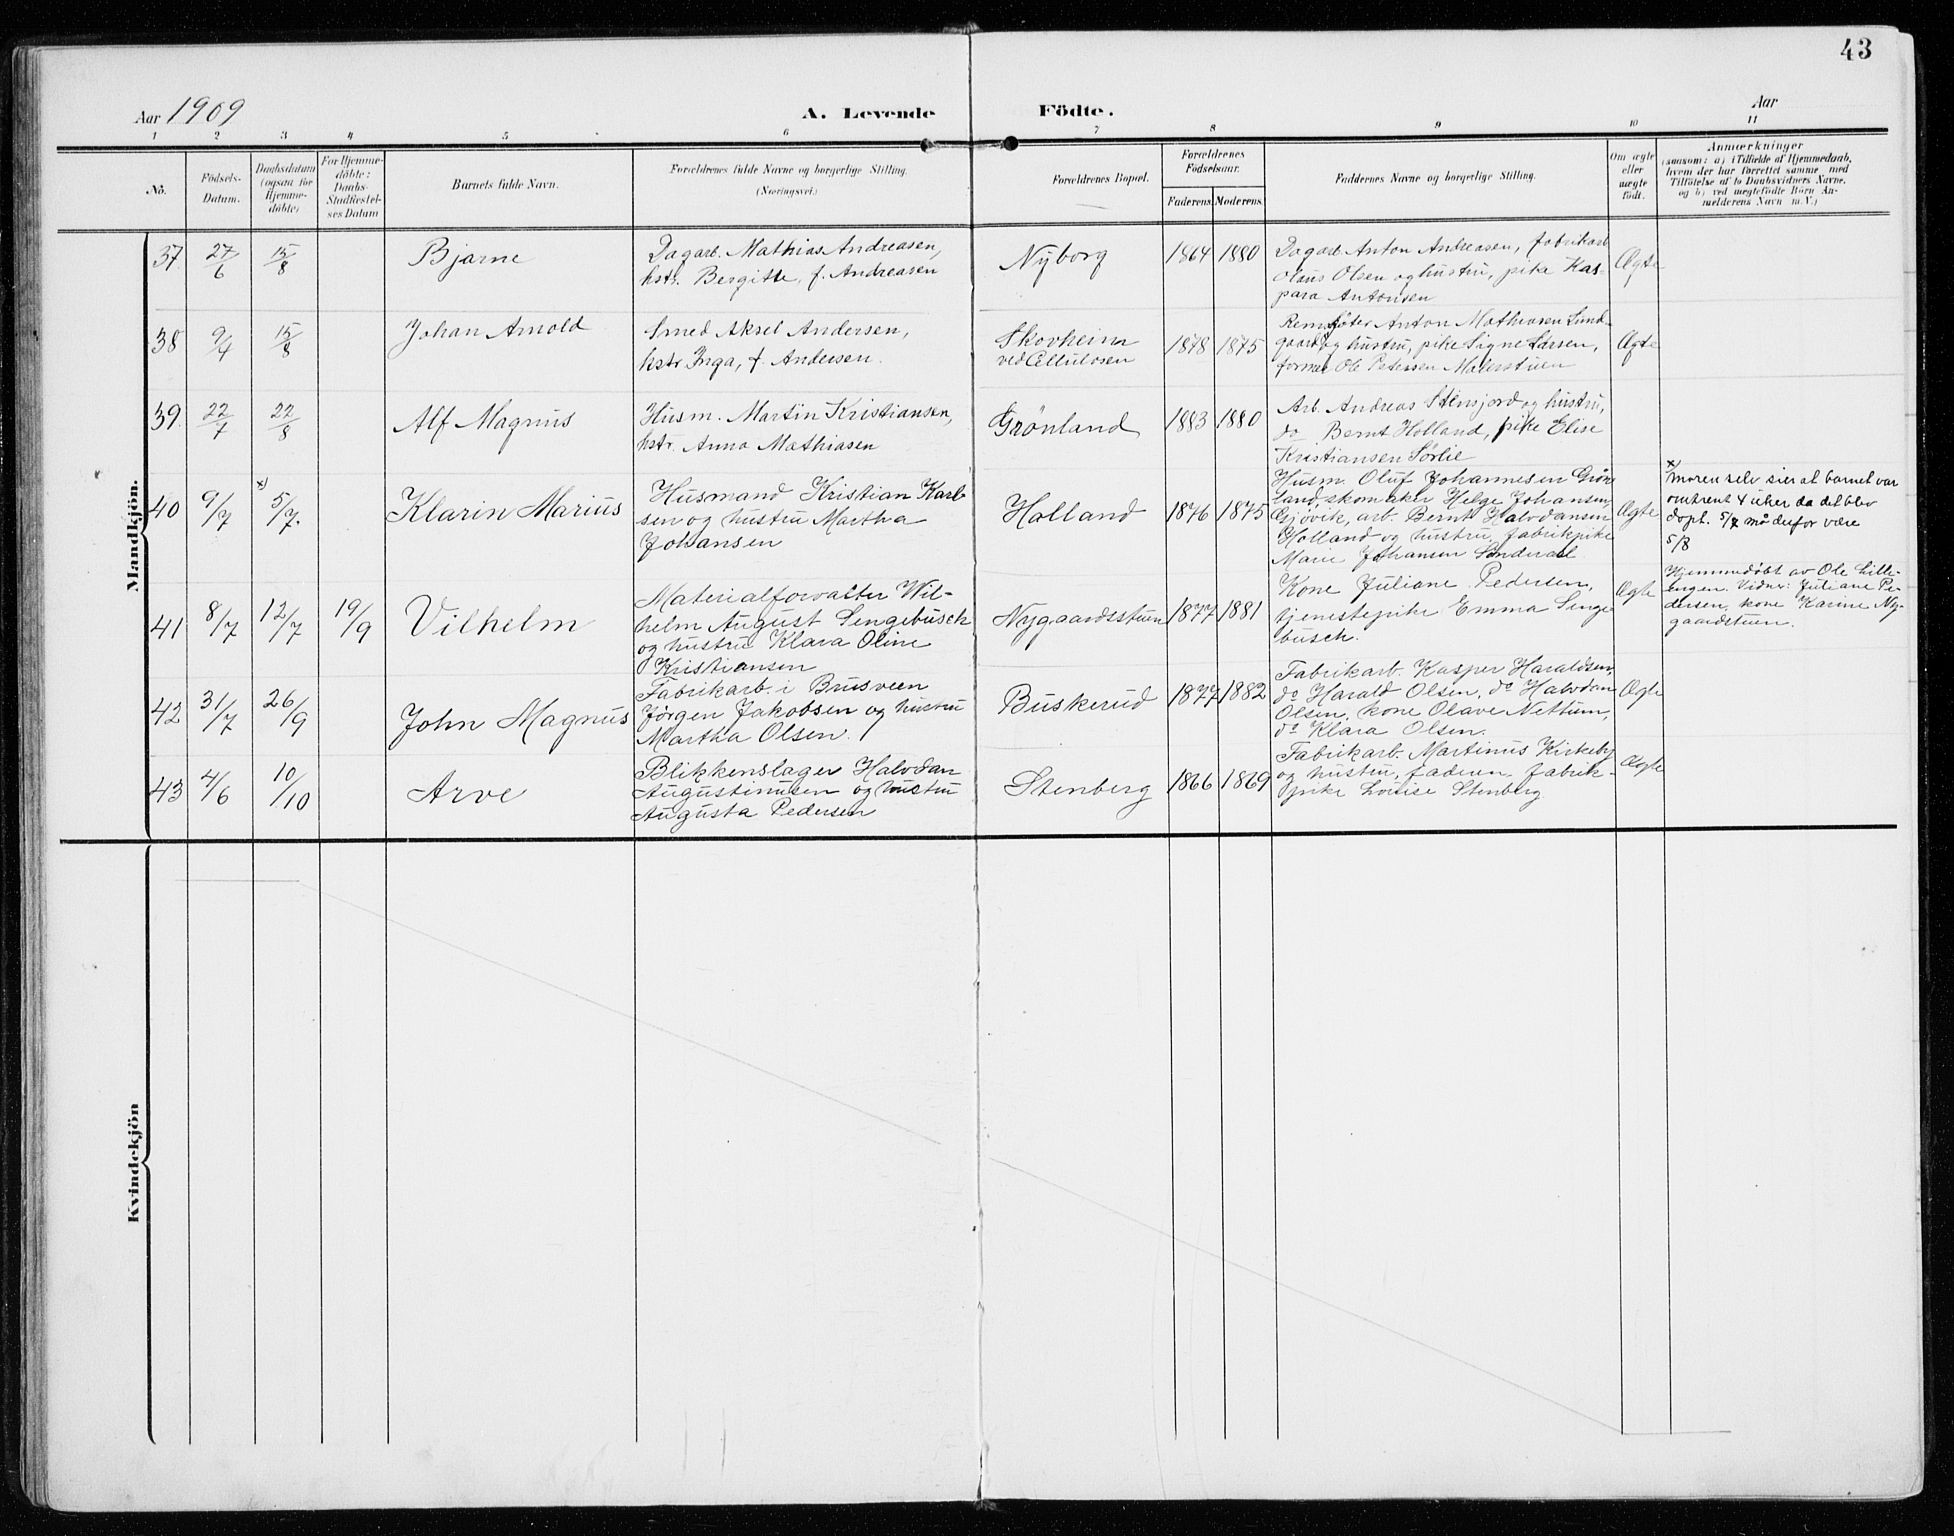 43
Aar 1909
A. Levende Födte.
Aar
1 2 3 4 5 6 7 8 9 10 11
No.
Födsels-
Datum.
Daabsdatum
(ogsaa for
Hjemme-
döbte)
For Hjemme-
döbte:
Daabs-
Stadfæstel-
ses Datum
Barnets fulde Navn.
Forældrenes fulde Navne og borgerlige Stilling.
(Næringsvei.)
Forældrenes Bopæl.
Forældrenes
Födselsaar.
Faderens Moderens.
Faddernes Navne og borgerlige Stilling.
Om ægte
eller
uægte
født.
Anmærkninger
(saasom: a) i Tilfælde af Hjemmedaab,
hvem der har forrettet samme med
Tilföielse af to Daabsvidners Navne.
og b) ved uægtefödte Börn An-
melderens Navn m. V.)
Mandkjön.
37 27/6 15/8
Bjarne
Dagarb. Mathias Andreasen,
hstr. Bergitte, f. Andreasen
Nyborg
1864 1880
Dagarb. Anton Andreasen, fabrikarb.
Olaus Olsen og hustru, pike Kas-
para Antonsen
Ægte
38 9/4 15/8
Johan Arnold
Smed Aksel Andersen,
hstr. Inga, f. Andersen.
Skovheim
ved Cellulosen
1878 1875
Anton Mathiasen Lund-
gaard og hustru, pike Signe Larsen,
former Ole Petersen Malerstuen
Ægte
39 22/7 22/8
Alf Magnus
Husm. Martin Kristiansen,
hstr. Anna Mathiasen
Grönland
1883 1880
Arb. Andreas Stensjord og hustru,
do Bernt Holland, pike Elise
Kristiansen Sørlie
40 9/7 x) 5/7.
Klarin Marius
Husmand Kristian Karl-
sen og hustru Martha
Johansen
Holland
1876 1875
Husm. Oluf Johannesen Grön-
land, skomaker Helge Johansen,
Gjøvik, arb. Bernt Halvdansen
Holland og hustru, fabrikpike
Marie Johansen Sønderal
Ægte
x)
moren selv sier at barnet var
omtrent 4 uker da det blev
døpt. 5/7 må derfor være
5/8
41 8/7 12/7 19/9
Vilhelm
Materialforvalter Wil-
helm August Sengebusch
og hustru Klara Oline
Kristiansen
Nygaardsstuen
1877 1881
Kone Juliane Pedersen,
tjenestepike Emma Senge
busch.
Ægte
Hjemmedöbt av Ole Lille-
engen. Vidner: Juliane Pe-
dersen, kone Karine Ny-
gaardstuen.
42 31/7 26/9
John Magnus
Fabrikarb. i Brusveen
Jørgen Jakobsen og hustru
Martha Olsen.
Buskerud
1877 1882
Fabrikarb. Kasper Haraldsen,
do Harald Olsen, do Halvdan
Olsen, kone Olave Nettum,
do Klara Olsen.
Ægte
43 4/6 10/10
Arve
Blikkenslager Halvdan
Augustinusen og hustru
Augusta Pedersen
Stenberg
1866 1869
Fabrikarb. Martinus Kirkeby
og hustru, faderen, fabrik-
pike Louise Stenberg
Ægte
Kvindekjön